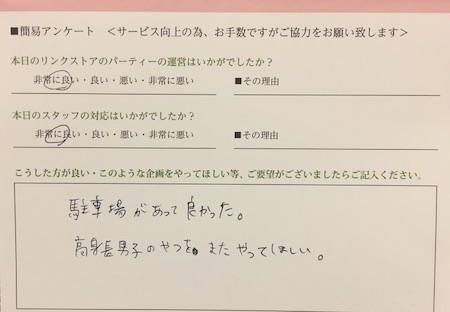 ■簡易アンケート　＜サービス向上の為、お手数ですがご協力をお願い致します＞
本日のリンクストアのパーティーの運営はいかがでしたか？
非常に良い・良い・悪い・非常に悪い　■その理由
本日のスタッフの対応はいかがでしたか？
非常に良い・良い・悪い・非常に悪い　■その理由
こうした方が良い・このような企画をやってほしい等、ご要望がございましたらご記入ください。
駐車場があって良かった。
高身長男子のやつを。またやってほしい。